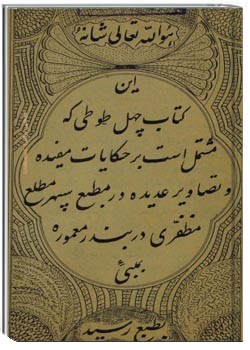 هو الله تعالی شانه
این
کتاب چهل طوطی که
مشتمل است بر حکایات مفیده
و تصاویر عدیده در مطبع سپهر مطلع
مظفری در بندر معموره
بمبئی
بطبع رسید